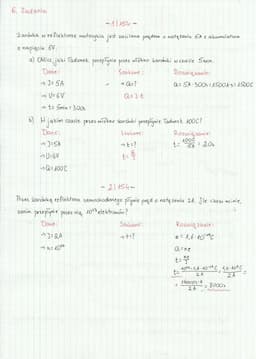 6. Zadania
- 1/154 -
Żarówka w reflektorze motocykla jest zasilana prądem o natężeniu 5A z akumulatora
o napięciu 6V.
a) Oblicz, jaki ładunek przepłynie przez włókno żarówki w czasie 5min.
Dane: Szukane: Rozwiązanie:
→ I=5A → Q=? Q= 5A·300s=1500A·s=1500C
→ U=6V Q=I·t
→ t=5min=300s
b) W jakim czasie przez włókno żarówki przepłynie ładunek 100C?
Dane: Szukane: Rozwiązanie:
→ I=5A → t=? t= 100C/5A = 20s
→ U=6V t= Q/I
→ Q=100C
- 2/154 -
Przez żarówkę reflektora samochodowego płynie prąd o natężeniu 2A. Ile czasu minie,
zanim przepłynie przez nią elektronów?
Dane: Szukane: Rozwiązanie:
→ I=2A → t=?
Q=ne
t= ne/I
= 8000s